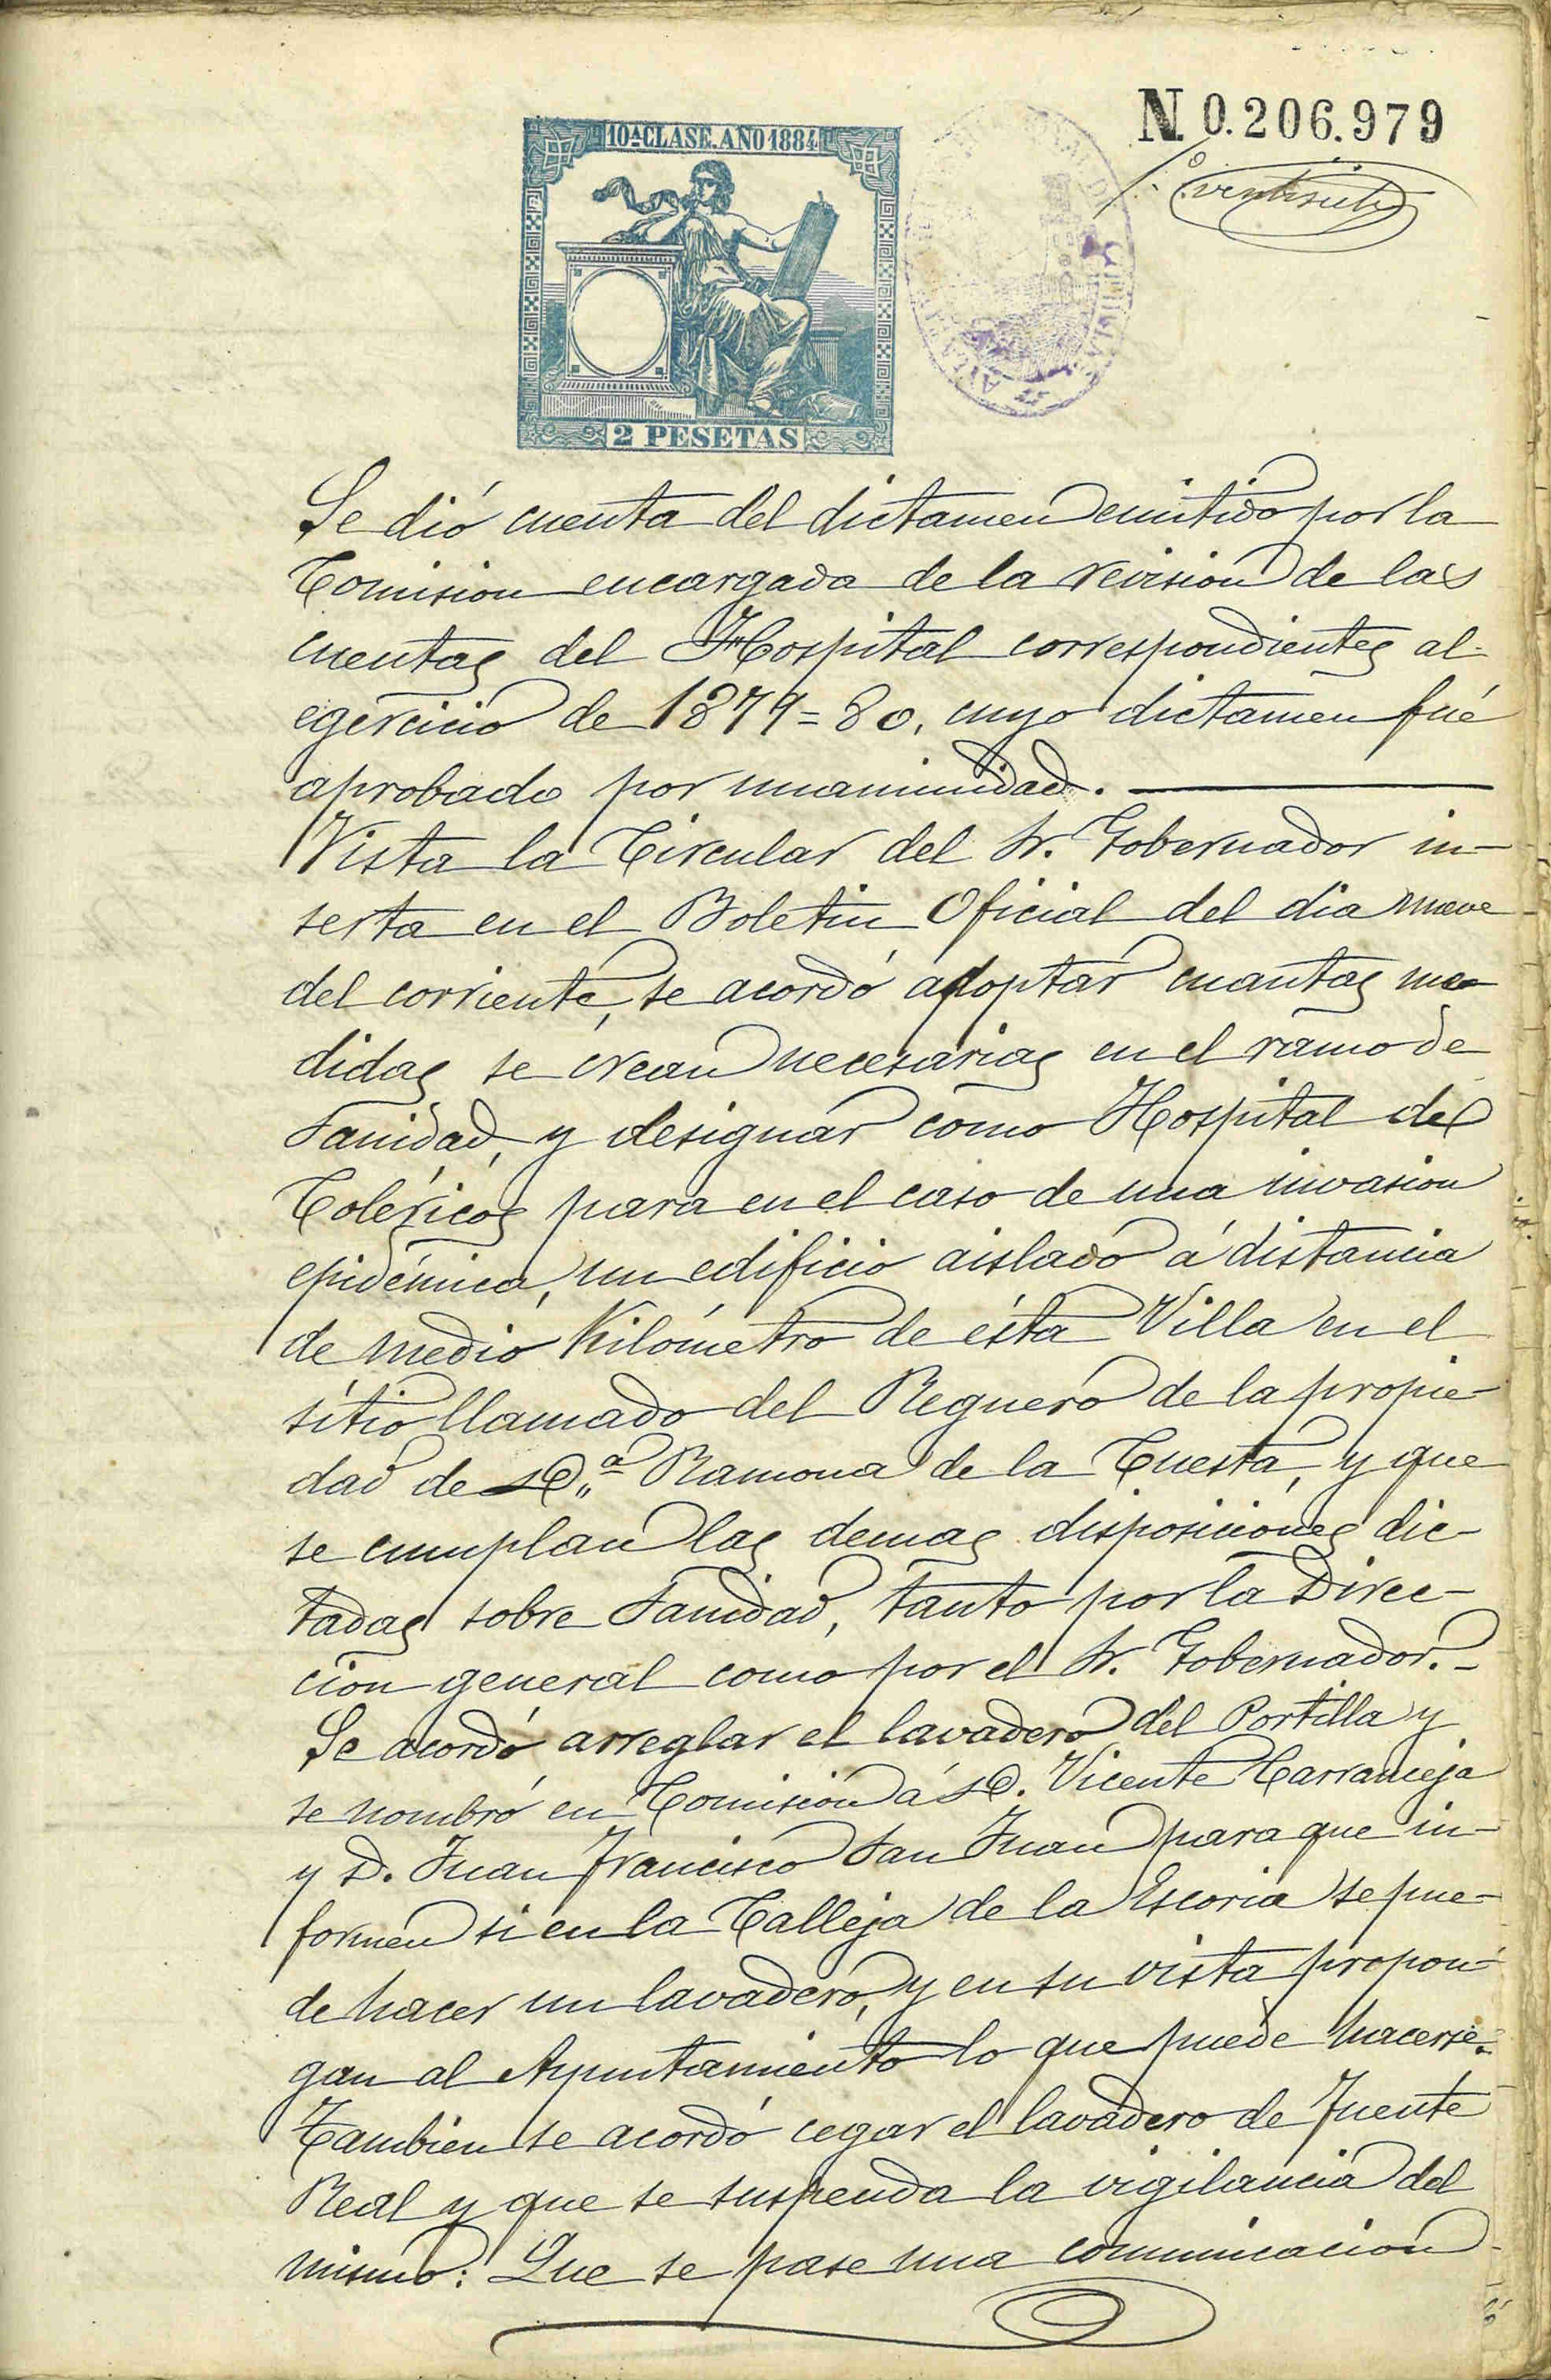 N. 0.206.979
10ª CLASE. AÑO 1884
ventisiete
2 PESETAS
Se dió cuenta del dictamen emitido por la
Comision encargada de la revision de las
cuentas del Hospital correspondientes al
egercicio de 1879=80, cuyo dictamen fué
aprobado por unanimidad.
Vista la Circular del Sr. Gobernador in-
serta en el Boletin Oficial del dia nueve
del corriente, se acordó adoptar cuantas me-
didas se crean necesarias en el ramo de
Sanidad, y designar como Hospital de
Coléricos para en el caso de una invasion
epidémica, un edificio aislado á distancia
de medio Kilómetro de ésta Villa en el
sítio llamado del Reguero de la propie-
dad de D.ª Ramona de la Cuesta, y que
se cumplan las demas disposiciones dic-
tadas sobre Sanidad, tanto por la Direc-
cion general como por el Sr. Gobernador.
Se acordó arreglar el lavadero del Portilla y
se nombró en Comision á D. Vicente Carranceja
y D. Juan Francisco San Juan para que in-
formen si en la Calleja de la Escoria se pue-
de hacer un lavadero, y en su vista propon-
gan al Ayuntamiento lo que puede hacerse.
Tambien se acordó cegar el lavadero de Fuente
Real y que se suspenda la vigilancia del
mismo: Que se pase una comunicacion